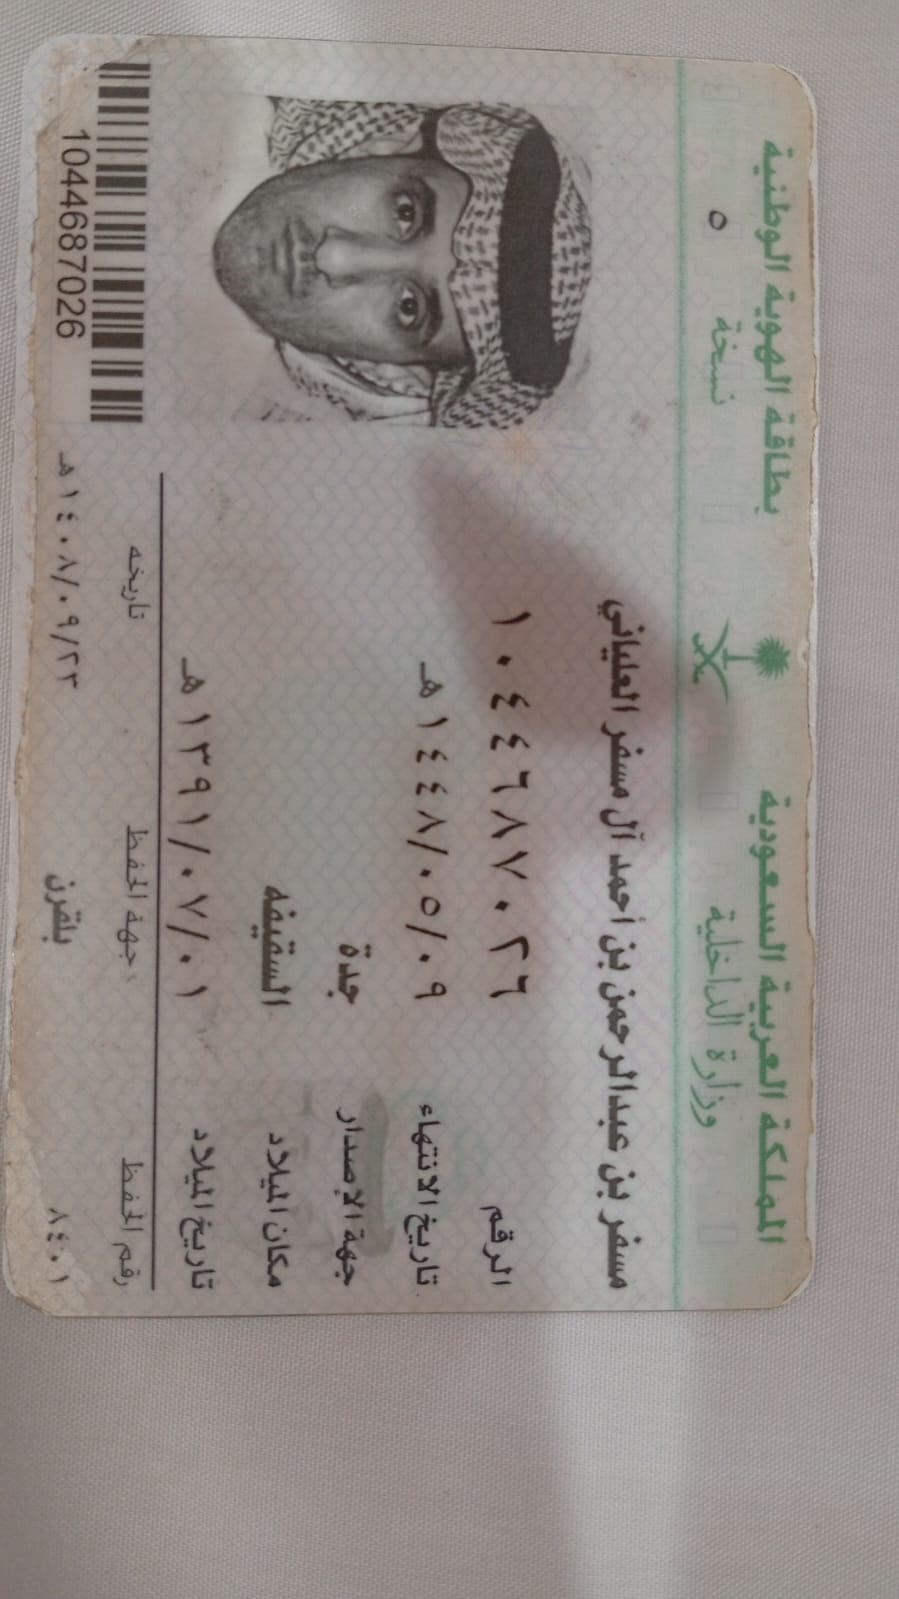 المملكة العربية السعودية
وزارة الداخلية
بطاقة الهوية الوطنية
نسخة ٥
مسفر بن عبدالرحمن بن أحمد آل مسفر العلياني
الرقم ١٠٤٤٦٨٧٠٢٦
تاريخ الانتهاء ١٤٤٨/٠٥/٠٩ هـ
جهة الإصدار جدة
مكان الميلاد السقيفه
تاريخ الميلاد ١٣٩١/٠٧/٠١ هـ
رقم الحفظ جهة الحفظ تاريخه
٨٤٠١ بلقرن ١٤٠٨/٠٩/٢٣ هـ
1044687026